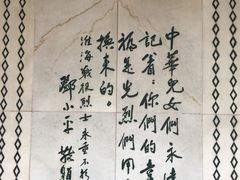 中華兒女們永
記着：你們的幸
福是先烈們用
換來的。
淮海戰役烈士永垂不朽
鄧小平 敬題